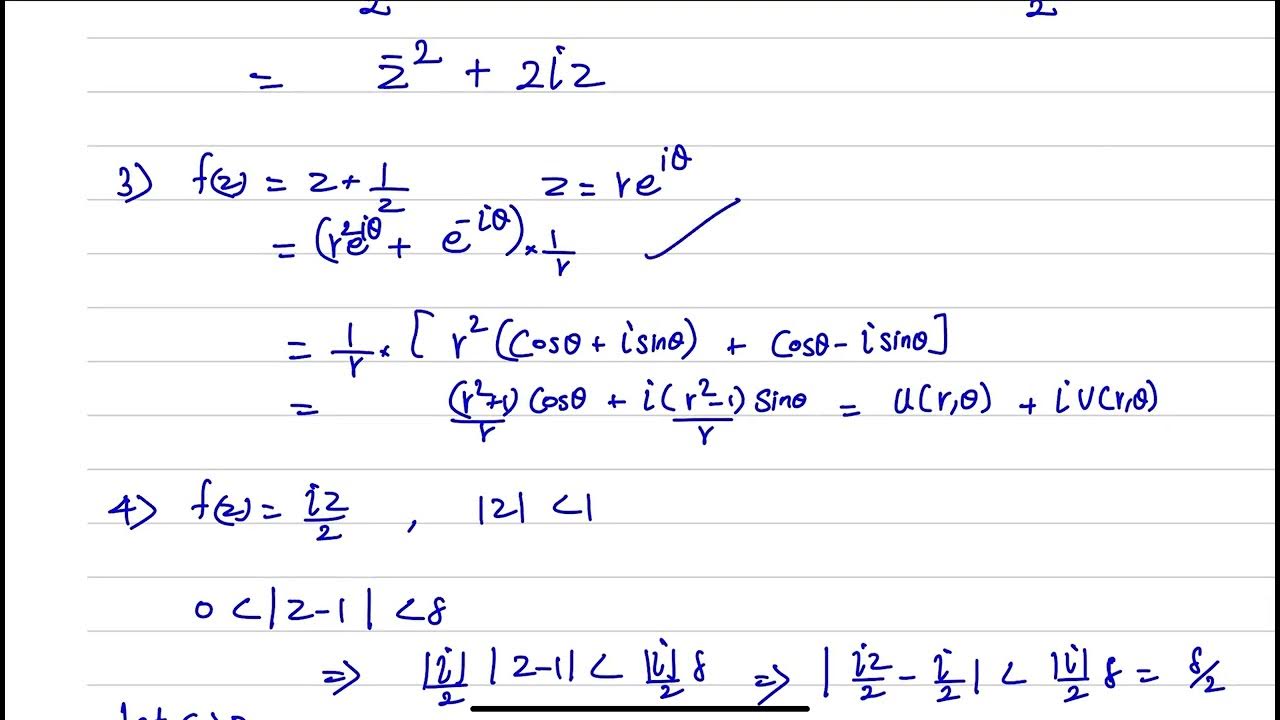 2 2
= z̄² + 2iz
3) f(z) = z + 1/z z = re^{iθ}
= (r²e^{iθ} + e^{-iθ}) × 1/r
= 1/r × [ r²(Cosθ + i sinθ) + Cosθ - i sinθ]
= (r²+1)/r Cosθ + i (r²-1)/r Sinθ = U(r,θ) + iV(r,θ)
4) f(z) = iz/2 , |z| < 1
0 < |z-1| < δ
=> |i|/2 |z-1| < |i|/2 δ => | iz/2 - i/2 | < |i|/2 δ = δ/2